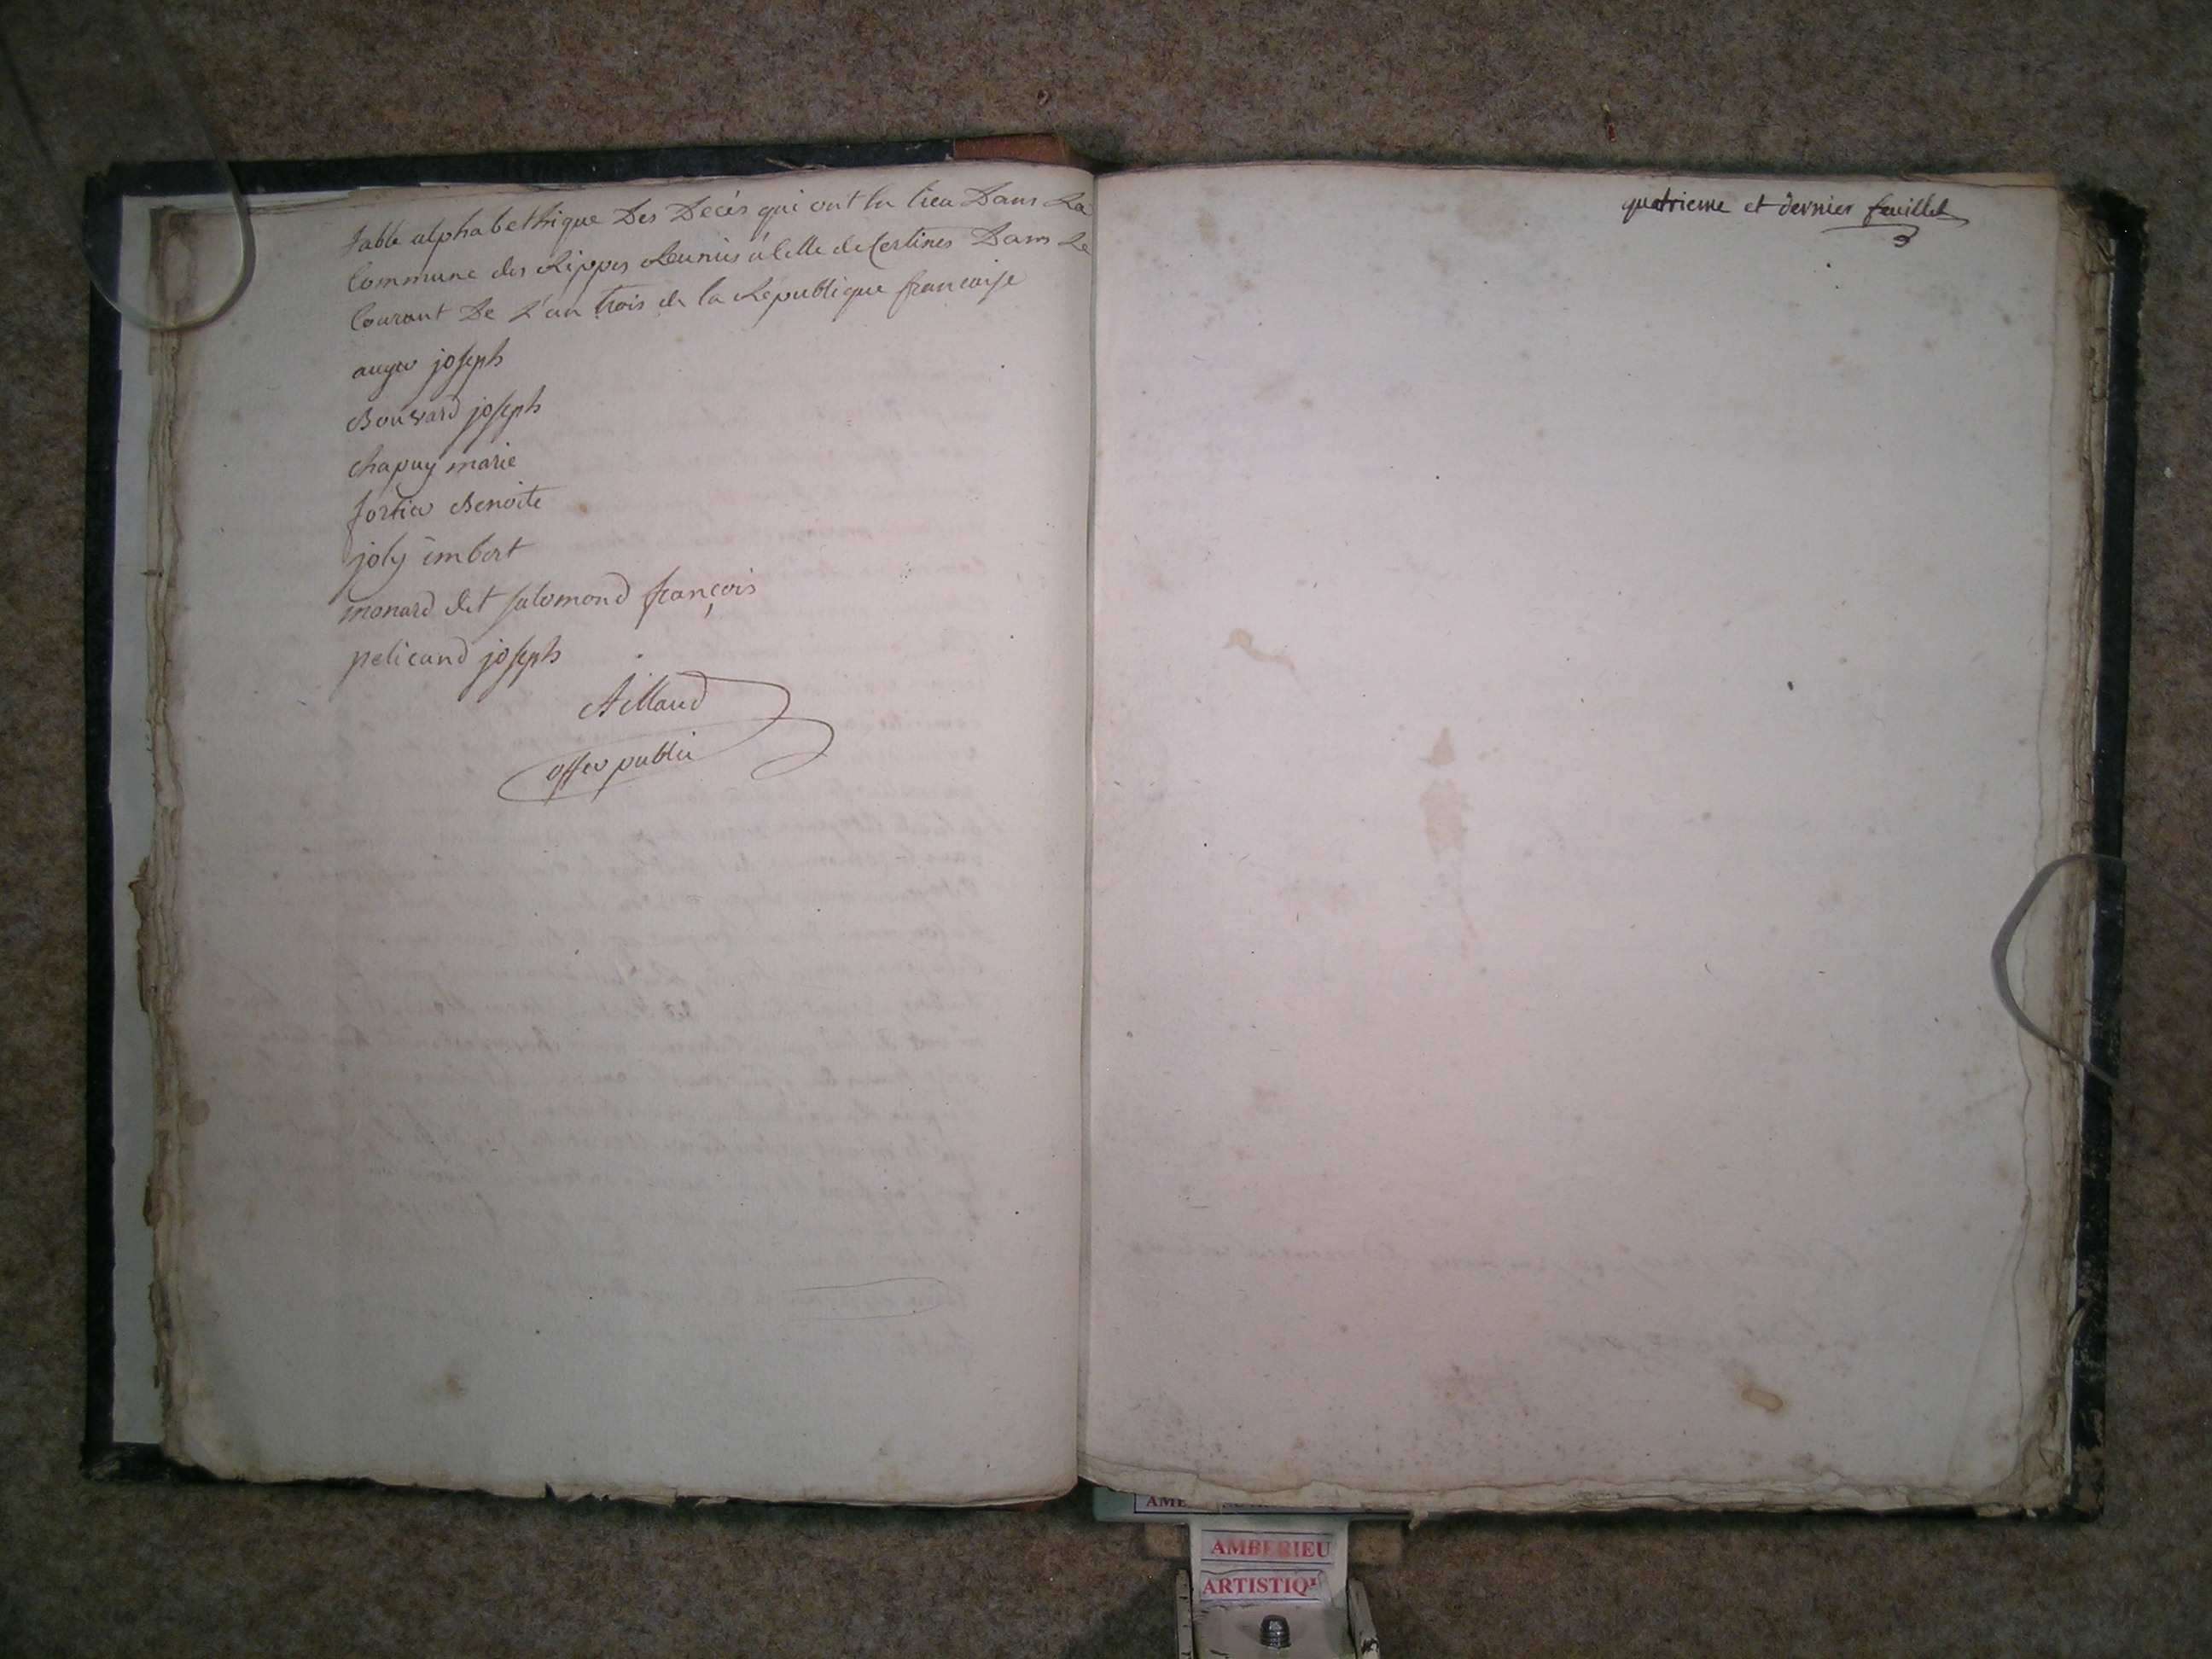 Table alphabethique Des Decès qui ont lu lieu Dans La
Commune des Rippes Reunies à celle de Certines Dans Le
Courant De L'an trois de la Republique francaise
auger joseph
Bouvard joseph
chapuy marie
fortier Benoite
joly imbert
monard dit salomond françois
pelicand joseph
Aillaud
offer public
quatrieme et dernier feuillet
AMBERIEU
ARTISTIQ